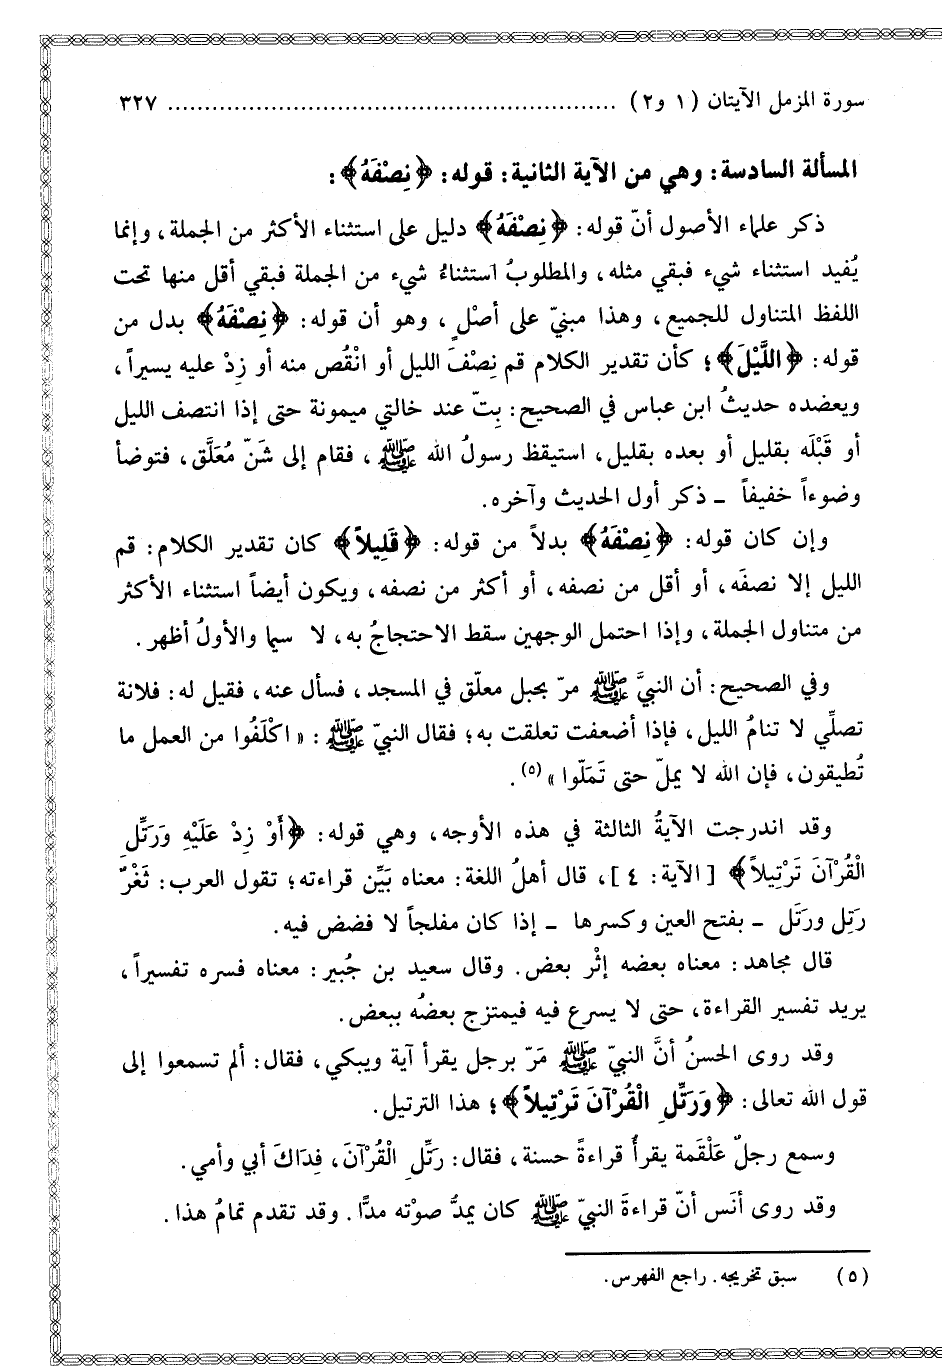 سورة المزمل الآيتان (١ و٢) ............................................................ ٣٢٧
المسألة السادسة: وهي من الآية الثانية: قوله: ﴿نِصْفَهُ﴾:
ذكر علماء الأصول أنّ قوله: ﴿نِصْفَهُ﴾ دليل على استثناء الأكثر من الجملة، وإنما
يُفيد استثناء شيء فبقي مثله، والمطلوبُ استثناءُ شيء من الجملة فبقي أقل منها تحت
اللفظ المتناول للجميع، وهذا مبنيّ على أصْلٍ، وهو أن قوله: ﴿نِصْفَهُ﴾ بدل من
قوله: ﴿اللَّيْلَ﴾؛ كأن تقدير الكلام قم نِصْفَ الليل أو انْقُص منه أو زِدْ عليه يسيراً،
ويعضده حديثُ ابن عباس في الصحيح: بِتّ عند خالتي ميمونة حتى إذا انتصف الليل
أو قَبْلَه بقليل أو بعده بقليل، استيقظ رسولُ الله ﷺ، فقام إلى شَنّ مُعَلَّق، فتوضأ
وضوءاً خفيفاً ـ ذكر أول الحديث وآخره.
وإن كان قوله: ﴿نِصْفَهُ﴾ بدلاً من قوله: ﴿قَلِيلاً﴾ كان تقدير الكلام: قم
الليل إلا نصفَه، أو أقل من نصفه، أو أكثر من نصفه، ويكون أيضاً استثناء الأكثر
من متناول الجملة، وإذا احتمل الوجهين سقط الاحتجاجُ به، لا سيما والأولُ أظهر.
وفي الصحيح: أن النبيَّ ﷺ مرّ بحبل معلّق في المسجد، فسأل عنه، فقيل له: فلانة
تصلِّي لا تنامُ الليل، فإذا أضعفت تعلقت به؛ فقال النبيّ ﷺ: «اكْلَفُوا من العمل ما
تُطيقون، فإن الله لا يملّ حتى تَمَلّوا»(٥).
وقد اندرجت الآيةُ الثالثة في هذه الأوجه، وهي قوله: ﴿أَوْ زِدْ عَلَيْهِ وَرَتِّلِ
الْقُرْآنَ تَرْتِيلاً﴾ [الآية: ٤]، قال أهلُ اللغة: معناه بَيِّن قراءته؛ تقول العرب: ثَغْرٌ
رَتِل ورَتَل ـ بفتح العين وكسرها ـ إذا كان مفلجاً لا فضض فيه.
قال مجاهد: معناه بعضه إثْر بعض. وقال سعيد بن جُبير: معناه فسره تفسيراً،
يريد تفسير القراءة، حتى لا يسرع فيه فيمتزج بعضُه ببعض.
وقد روى الحسنُ أنَّ النبيّ ﷺ مَرّ برجل يقرأ آية ويبكي، فقال: ألم تسمعوا إلى
قول الله تعالى: ﴿وَرَتِّلِ الْقُرْآنَ تَرْتِيلاً﴾؛ هذا الترتيل.
وسمع رجلٌ عَلْقمة يقرأُ قراءةً حسنة، فقال: رَتِّلِ الْقُرْآنَ، فِدَاكَ أبي وأمي.
وقد روى أنَس أنّ قراءةَ النبيّ ﷺ كان يمدُّ صوْته مدًّا. وقد تقدم تمامُ هذا.
(٥) سبق تخريجه. راجع الفهرس.